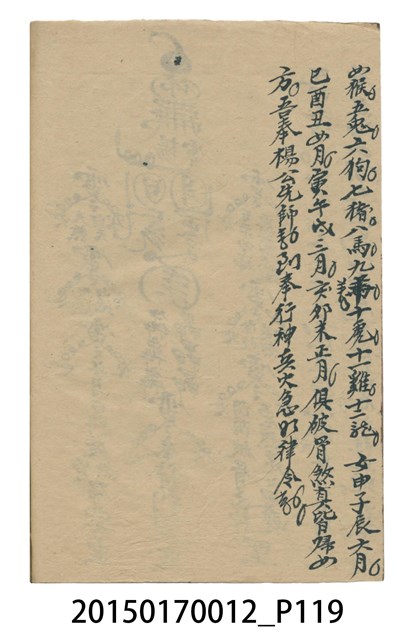 四猴五兔六狗七猪八馬九羊十鬼十一雞十二龍 女申子辰六月
巳酉丑四月寅午戌三月亥卯未正月俱破骨煞真皆歸四
方吾奉楊公先師勅到奉行神兵火急如律令勅
20150170012_P119